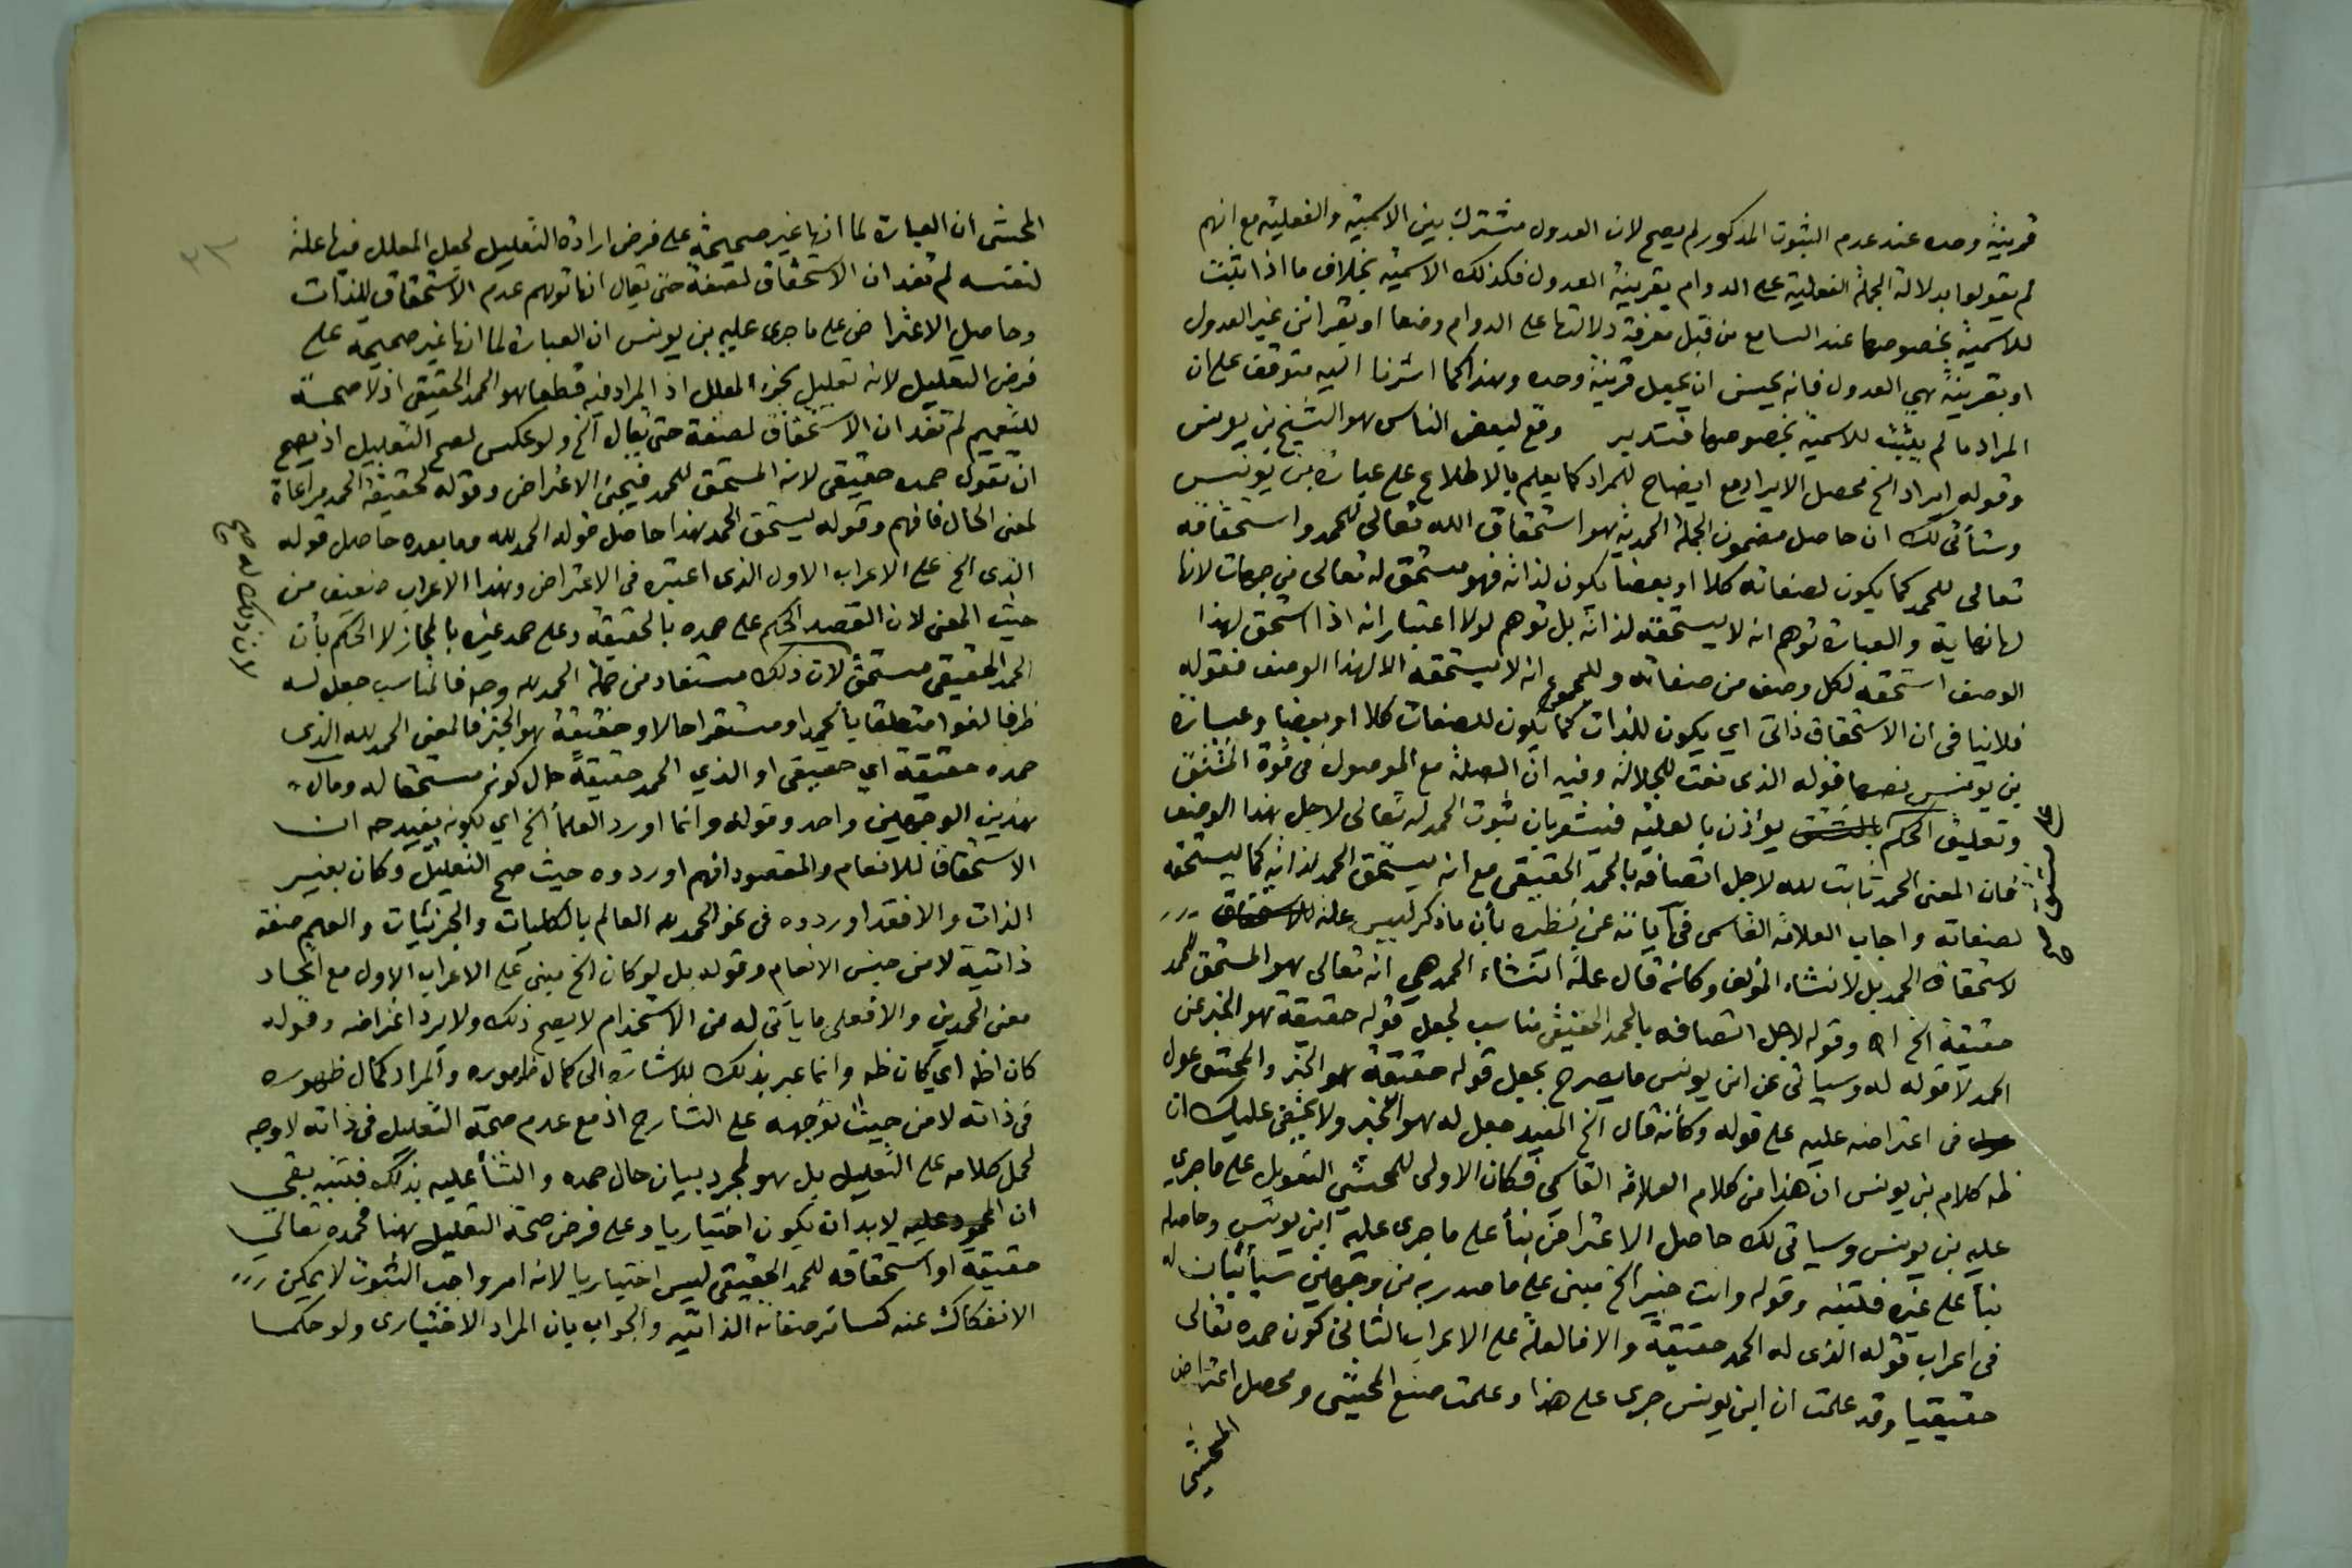 قرينة وحده عند عدم الثبوت المذكور لم يصح لان العدول مشترك بين الاسمية والفعلية مع انهم
لم يقولوا بدلالة الجملة الفعلية على الدوام بقرينة العدول فكذلك الاسمية بخلاف ما اذا ثبتت
للاسمية بخصوصها عند السامع من قبل معرفة دلالتها على الدوام وضعا او بقرائن غير العدول
او بقرينة هي العدول فانه يحسن ان يجعل قرينة وحده وهذا كما اشرنا اليه متوقف على ان
المراد ما لم يثبت للاسمية بخصوصها فتدبر وقع لبعض الناس هو الشيخ بن يونس
وقوله ايراد الخ محصل الايراد مع ايضاح للمراد كما يعلم بالاطلاع على عبارة بن يونس
وستأتى لك ان حاصل مضمون الجملة الحمدية هو استحقاق الله تعالى للحمد واستحقاقه
تعالى للحمد كما يكون لصفاته كلا او بعضا يكون لذاته فهو مستحق له تعالى من جهات لا
لها نهاية والعبارة توهم انه لا يستحقه لذاته بل توهم لولا اعتبار انه اذا استحق لهذا
الوصف استحقه لكل وصف من صفاته وللمجموع انه لا يستحقه الا لهذا الوصف فقوله
فلا ينافى ان الاستحقاق ذاتى اي يكون للذات كما يكون للصفات كلا او بعضا وعبارة
بن يونس نصها قوله الذى نعت للجلالة وفيه ان الصلة مع الموصول فى قوة المشتق
وتعليق الحكم بالمشتق يؤذن بالعلية فيشعر بان ثبوت الحمد له تعالى لاجل هذا الوصف
فان المعنى الحمد ثابت لله لاجل اتصافه بالحمد الحقيقى مع انه يستحق الحمد لذاته كما يستحقه
لصفاته واجاب العلامة القاسمى فى آياته عن نظيره بأن ما ذكر ليس علة للاستحقاق
لاستحقاق الحمد بل لانشاء المؤلف وكانه قال علة انشاء الحمد هي انه تعالى هو المستحق للحمد
حقيقة الخ اه وقوله لاجل اتصافه بالحمد الحقيقى مناسب لجعل قوله حقيقة هو الخبر عن
الحمد لا قوله له وسياتى عن ابن يونس ما يصرح بجعل قوله حقيقة هو الخبر والمحشى عول
عول فى اعتراضه عليه على قوله وكأنه قال الخ المفيد جعل له هو الخبر ولا يخفى عليك ان
ظه كلام بن يونس ان هذا من كلام العلامة القاسمى فكان الاولى للمحشي التعويل على ما جرى
عليه بن يونس وسياتى لك حاصل الاعتراض بنأ على ما جرى عليه ابن يونس وحاصله
بنأ على غيره فلتنبه وقوله وانت خبير الخ مبنى على ما صدر به من وجهين سيأتيان له
فى اعراب قوله الذى له الحمد حقيقة والا فالعلة على الاعراب الثانى كون حمده تعالى
حقيقيا وقد علمت ان ابن يونس جرى على هذا وعلمت صنع المحشى ومحصل اعتراض
المحشى
المحشى ان العبارة لما انها غير صحيحة على فرض ارادة التعليل لجعل المعلل فيها علة
لنفسه لم تفد ان الاستحقاق لصفة حتى يقال انها توهم عدم الاستحقاق للذات
وحاصل الاعتراض على ما جرى عليه بن يونس ان العبارة لما انها غير صحيحة على
فرض التعليل لانه تعليل بجزء المعلل اذ المراد فيه قطعا هو الحمد الحقيقى اذ لا صحة
للتعميم لم تفد ان الاستحقاق لصفة حتى يقال الخ ولو عكس لصح التعليل اذ يصح
ان تقول حمده حقيقى لانه المستحق للحمد فيجئ الاعتراض وقوله لحقيقة الحمد مراعاة
لمعنى الحال فافهم وقوله يستحق الحمد هذا حاصل قوله الحمد لله وما بعده حاصل قوله
الذى الخ على الاعراب الاول الذى اعتبره فى الاعتراض وهذا الاعراب ضعيف من
حيث المعنى لان القصد الحكم على حمده بالحقيقة وعلى حمد غيره بالمجاز لا الحكم بأن
الحمد الحقيقى مستحق لان ذلك مستفاد من جملة الحمد لله وحده فالمناسب جعل له
ظرفا لغوا متعلقا بالحمد او مستقرا حالا وحقيقة هو الخبر فالمعنى الحمد لله الذى
حمده حقيقة اي حقيقى او الذي الحمد حقيقة حال كونه مستحقا له ومآل
هذين الوجهين واحد وقوله وانما اورد العلمأ الخ اي لكونه يفيد حه ان
الاستحقاق للانعام والمقصود انهم اوردوه حيث صح التعليل وكان بغير
الذات والا فقد اوردوه فى نحو الحمد لله العالم بالكليات والجزئيات والعلم صفة
ذاتية لا من جنس الانعام وقوله بل لو كان الخ مبنى على الاعراب الاول مع اتحاد
معنى الحمدين والا فعلى ما يأتى له من الاستخدام لا يصح ذلك ولا يرد اعتراضه وقوله
كان اظه اي كان ظه وانما عبر بذلك للاشارة الى كمال ظهوره والمراد كمال ظهوره
فى ذاته لا من حيث توجهه على الشارح اذ مع عدم صحة التعليل فى ذاته لا وجه
لحمل كلامه على التعليل بل هو لمجرد بيان حال حمده والثنأ عليه بذلك فتنبه بقي
ان المحمود عليه لابد ان يكون اختياريا وعلى فرض صحة التعليل هنا فحمده تعالي
حقيقة او استحقاقه للحمد الحقيقى ليس اختياريا لانه امر واجب الثبوت لا يمكن
الانفكاك عنه كسائر صفاته الذاتيه والجواب بان المراد الاختيارى ولو حكما